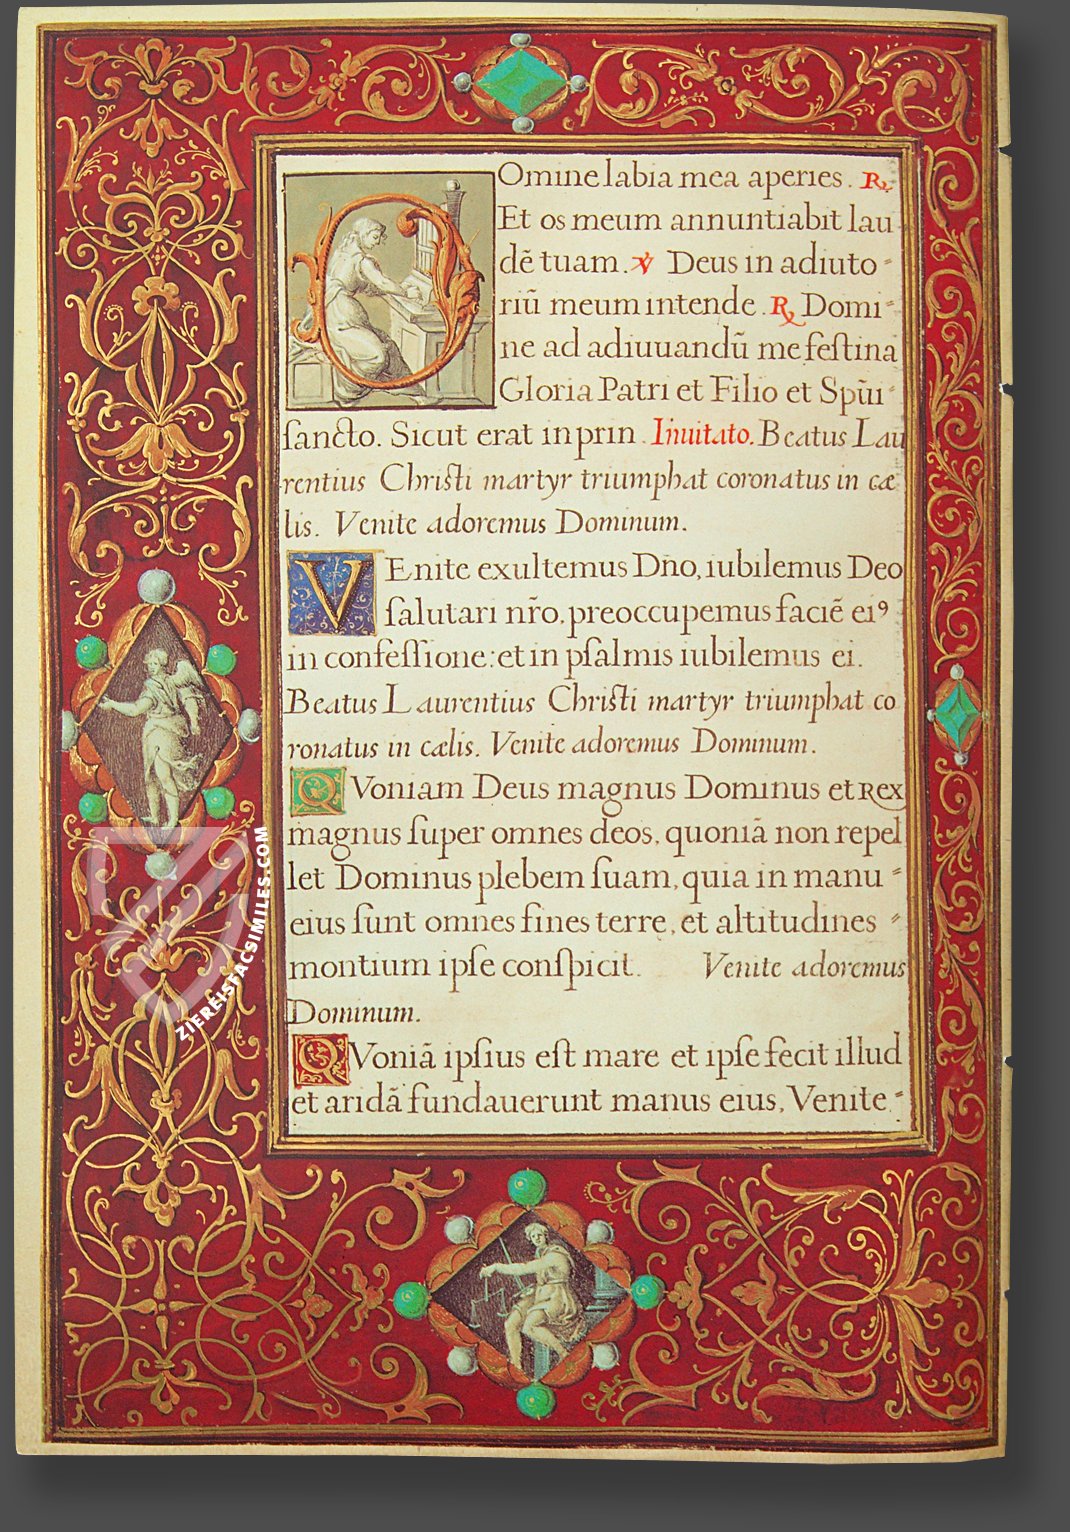 DOmine labia mea aperies. ℟.
Et os meum annuntiabit lau
dẽ tuam. ℣ Deus in adiuto⸗
riũ meum intende. ℟ Domi⸗
ne ad adiuuandũ me feſtina
Gloria Patri et Filio et Sp̃ui⸗
ſancto. Sicut erat in prin. Inuitato. Beatus Lau
rentius Chriſti martyr triumphat coronatus in cæ
lis. Venite adoremus Dominum.
VEnite exultemus Dño, iubilemus Deo
ſalutari nr̃o, preoccupemus faciẽ eiꝰ
in confeſſione: et in pſalmis iubilemus ei.
Beatus Laurentius Chriſti martyr triumphat co
ronatus in cælis. Venite adoremus Dominum.
QVoniam Deus magnus Dominus et Rex
magnus ſuper omnes deos, quoniã non repel
let Dominus plebem ſuam, quia in manu⸗
eius ſunt omnes fines terrę, et altitudines⸗
montium ipſe conſpicit. Venite adoremus
Dominum.
QVoniã ipſius eſt mare et ipſe fecit illud
et aridã fundauerunt manus eius, Venite⸗
ZIEREISFACSIMILES.COM